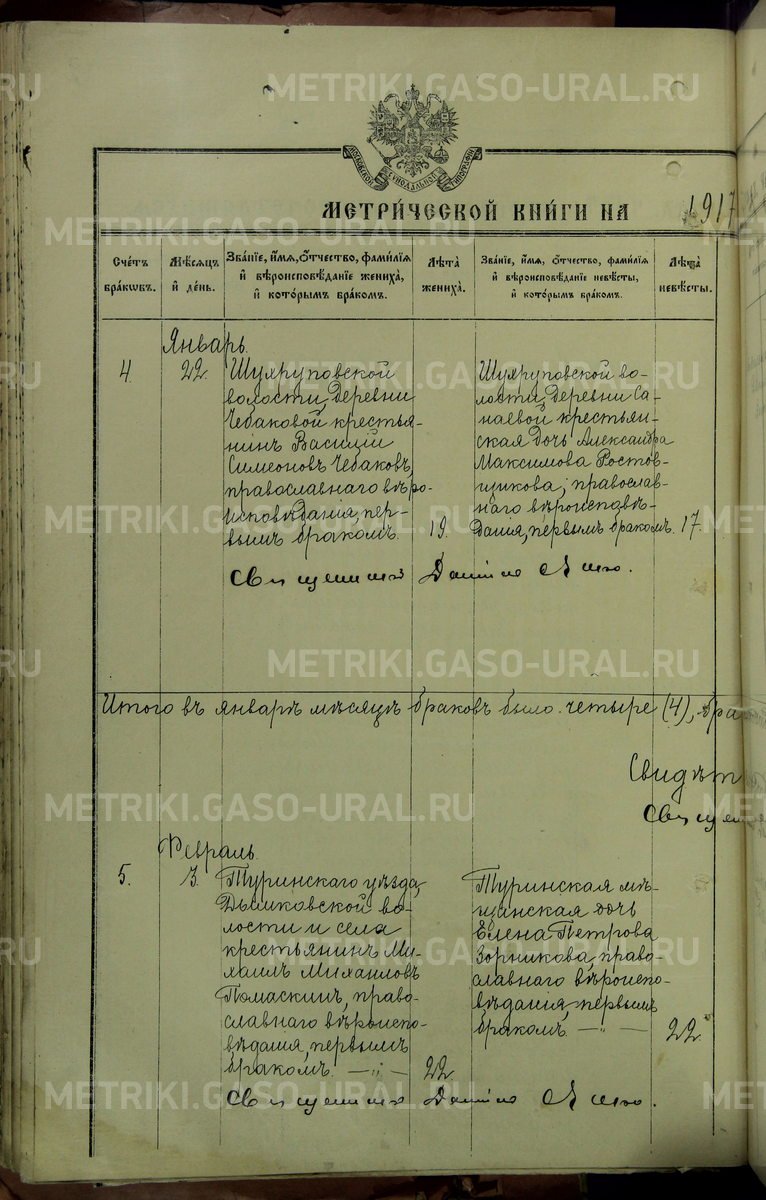 МОСКОВСКОЙ СѴНОДАЛЬНОЙ ТИПОГРАФІИ
МЕТРИ́ЧЕСКОЙ КНИ́ГИ НА 1917
Сче́тъ бра́кѡвъ.
Мѣ́сяцъ и́ де́нь.
Зва́нїе, и́мя, ѻ́тчество, фамилїя
и́ вѣроисповѣ́данїе жениха̀,
и́ кото́рымъ бра́комъ.
Лѣ́та̀ жениха̀.
Зва́нїе, и́мя, ѻ́тчество, фамилїя
и́ вѣроисповѣ́данїе невѣ́сты,
и́ кото́рымъ бра́комъ.
Лѣ́та̀ невѣ́сты.
Январь.
4. 22.
Шухруповской
волости, деревни
Чебаковой крестья-
нинъ Василій
Симеоновъ Чебаковъ,
православнаго вѣро-
исповѣданія, пер-
вымъ бракомъ.
19.
Шухруповской во-
лости, деревни Са-
наевой крестьян-
ская дочь Александра
Максимова Ростов-
щикова, православ-
наго вѣроисповѣ-
данія, первымъ бракомъ.
17.
Священникъ
Итого въ январѣ мѣсяцѣ браковъ было четыре (4), бра
Свидѣт
Священ
Февраль.
5. 3.
Туринскаго уѣзда,
Дымковской во-
лости и села
крестьянинъ Ми-
хаилъ Михаиловъ
Помаскинъ, право-
славнаго вѣроиспо-
вѣданія, первымъ
бракомъ. — „ —
22.
Туринская мѣ-
щанская дочь
Елена Петрова
Зорникова, право-
славнаго вѣроиспо-
вѣданія, первымъ
бракомъ. — „ —
22.
Священникъ
METRIKI.GASO-URAL.RU